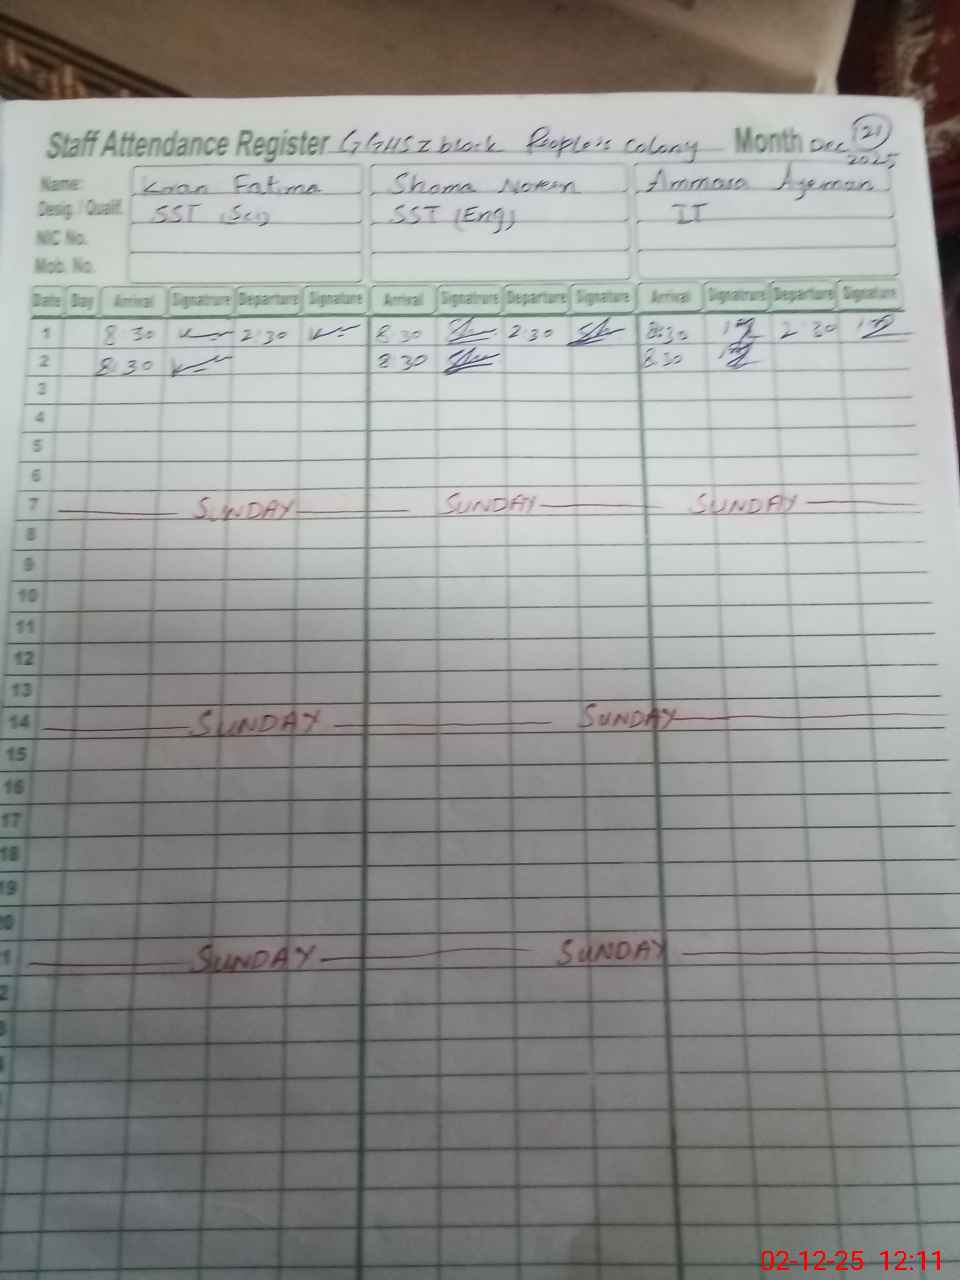 Staff Attendance Register GGHS Z block People's Colony Month Dec 2025 (21)
Name: Kiran Fatima Shama Noreen Ammara
Desig. / Qualif. SST (Sci) SST (Eng) IT
NIC No.
Mob. No.
Date Day Arrival Signatrure Departure Signature Arrival Signatrure Departure Signature Arrival Signatrure Departure Signature
1 8:30 2:30 8:30 2:30 8:30 2:30
2 8:30 8:30 8:30
3
4
5
6
7 SUNDAY SUNDAY SUNDAY
8
9
10
11
12
13
14 SUNDAY SUNDAY
15
16
17
18
19
20
1 SUNDAY SUNDAY
2
02-12-25 12:11